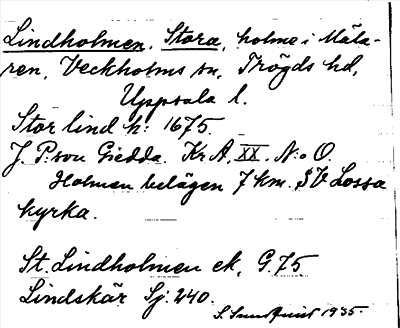 Lindholmen, Stora, holme i Mäla-
ren, Veckholms sn, Trögds hd,
Uppsala l.
Stor lind h: 1675.
J. P:son Giedda. Kr A, XX. N:o O.
Holmen belägen 7 km. SV Lossa
kyrka.
St. Lindholmen ek, G. 75
Lindskär Sj: 240.
S. Sundquist 1935.